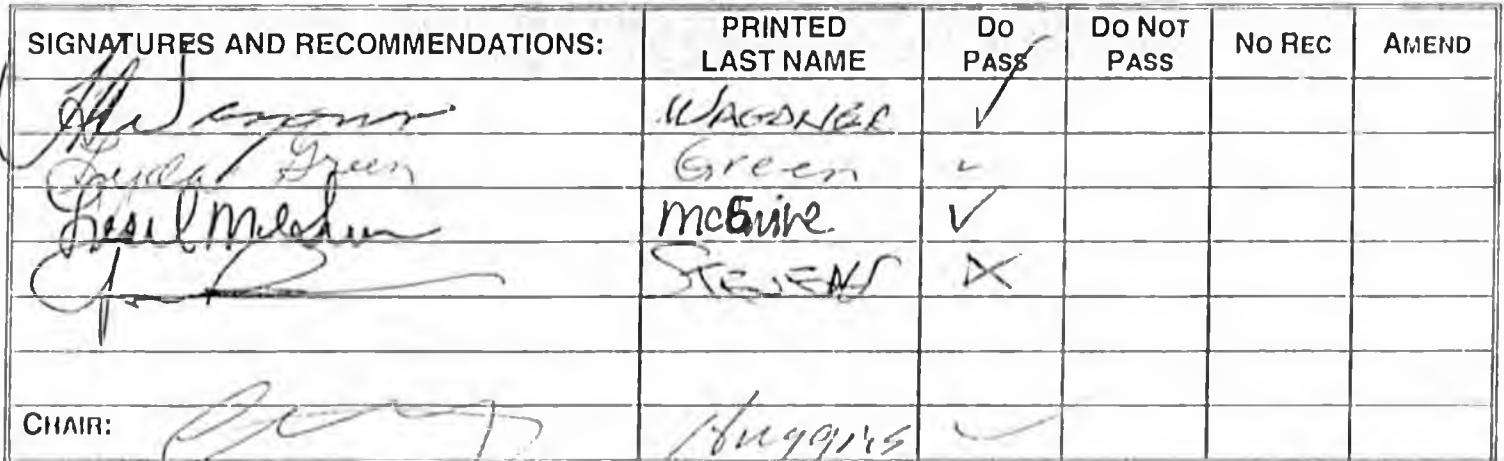 SIGNATURES AND RECOMMENDATIONS: PRINTED LAST NAME DO PASS DO NOT PASS NO REC AMEND
WAGONER ✓
Lyda Green Green ✓
Lesil McGuire McGuire ✓
STEVENS X
CHAIR: Huggins ✓